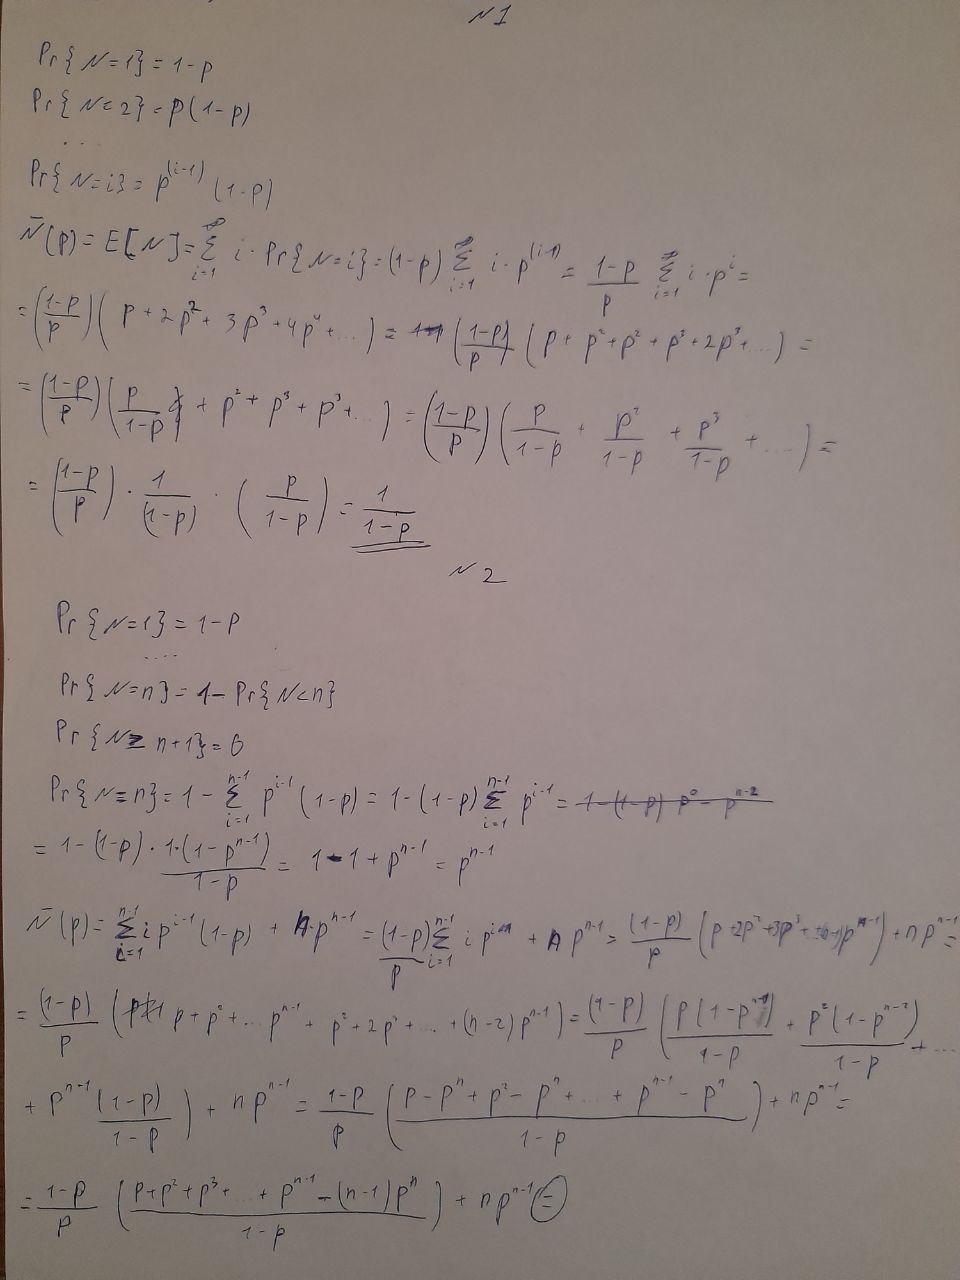 N1
Pr{N=1}=1-p
Pr{N=2}=p(1-p)
...
Pr{N=i}=p^(i-1) (1-p)
N̄(p)=E[N]=∑_{i=1}^{∞} i·Pr{N=i}=(1-p) ∑_{i=1}^{∞} i·p^(i-1) = (1-p)/p ∑_{i=1}^{∞} i·p^i =
= ((1-p)/p) (p+2p²+3p³+4p⁴+...) = ((1-p)/p) (p+p²+p²+p³+2p³+...) =
= ((1-p)/p) (p/(1-p) + p²+p³+p³+...) = ((1-p)/p) (p/(1-p) + p²/(1-p) + p³/(1-p) + ...) =
= ((1-p)/p) · 1/(1-p) · (p/(1-p)) = 1/(1-p)
N2
Pr{N=1}=1-p
....
Pr{N=n}=1-Pr{N<n}
Pr{N≥n+1}=0
Pr{N=n}=1-∑_{i=1}^{n-1} p^{i-1}(1-p)=1-(1-p)∑_{i=1}^{n-1} p^{i-1}=
= 1-(1-p)·1·(1-p^{n-1})/(1-p) = 1-1+p^{n-1}=p^{n-1}
N̄(p)=∑_{i=1}^{n-1} i p^{i-1}(1-p) + n·p^{n-1} = (1-p)/p ∑_{i=1}^{n-1} i p^i + n p^{n-1} = (1-p)/p (p+2p²+3p³+...+(n-1)p^{n-1}) + n p^{n-1} =
= (1-p)/p (p+p²+...p^{n-1} + p²+2p³+...+(n-2)p^{n-1}) = (1-p)/p (p(1-p^{n-1})/(1-p) + p²(1-p^{n-2})/(1-p) + ...
+ p^{n-1}(1-p)/(1-p)) + n p^{n-1} = (1-p)/p ((p-p^n+p²-p^n+...+p^{n-1}-p^n)/(1-p)) + n p^{n-1} =
= (1-p)/p ((p+p²+p³+...+p^{n-1}-(n-1)p^n)/(1-p)) + n p^{n-1} =